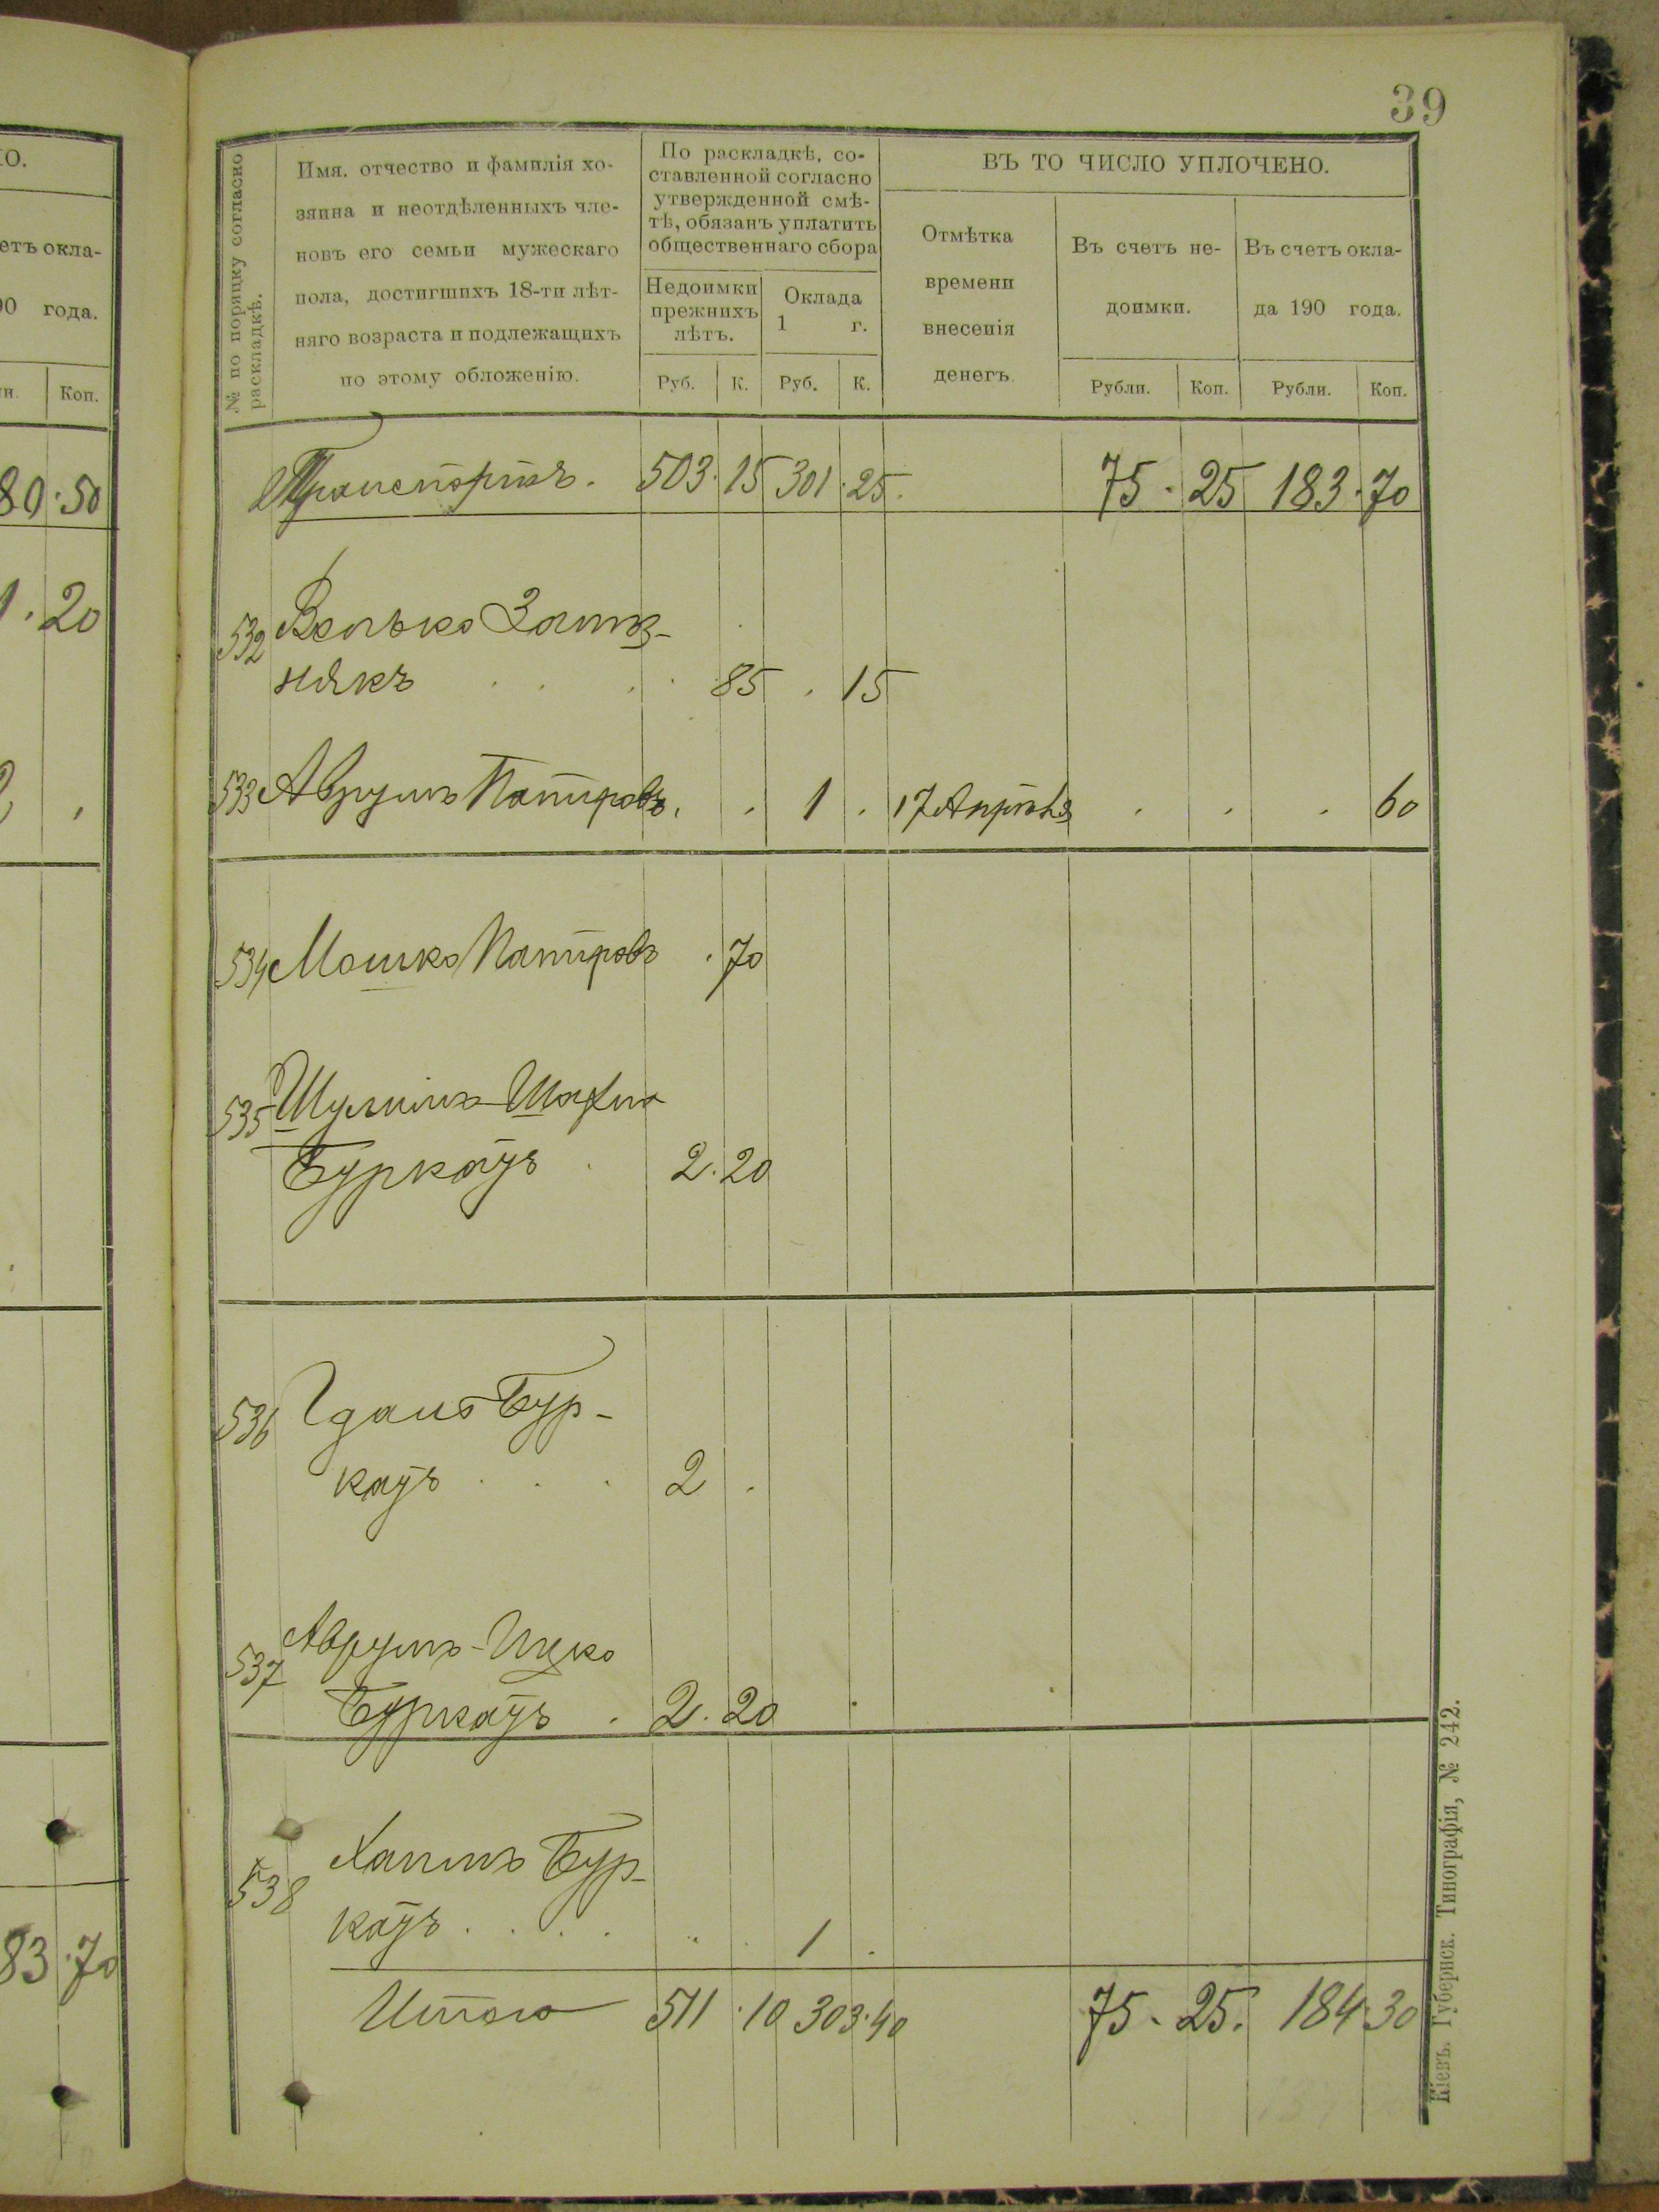 О.
етъ окла-
90 года.
Коп.
80.50
1.20
83.70
39
№ по порядку согласно
раскладкѣ.
Имя, отчество и фамилія хо-
зяина и неотдѣленныхъ чле-
новъ его семьи мужескаго
пола, достигшихъ 18-ти лѣт-
няго возраста и подлежащихъ
по этому обложенію.
По раскладкѣ, со-
ставленной согласно
утвержденной смѣ-
тѣ, обязанъ уплатить
общественнаго сбора
Недоимки
прежнихъ
лѣтъ.
Руб. К.
Оклада
1 г.
Руб. К.
ВЪ ТО ЧИСЛО УПЛОЧЕНО.
Отмѣтка
времени
внесенія
денегъ.
Въ счетъ не-
доимки.
Рубли. Коп.
Въ счетъ окла-
да 190 года.
Рубли. Коп.
Транспортъ. 503.15 301.25. 75.25 183.70
532 Волько
някъ 85 . 15
533 Аврумъ Папировъ . . 1 . 17 Апрѣля . . . 60
534 Мошко Папировъ . 70
535 Шулимъ-
Буркацъ . 2.20
536 Бур-
кацъ . . . 2 .
537 Аврумъ-Ицко
Буркацъ . 2.20 .
538 Хаимъ Бур-
кацъ . . . . . 1 .
Итого 511.10 303.40 75.25. 184.30
Кіевъ. Губернск. Типографія, № 242.